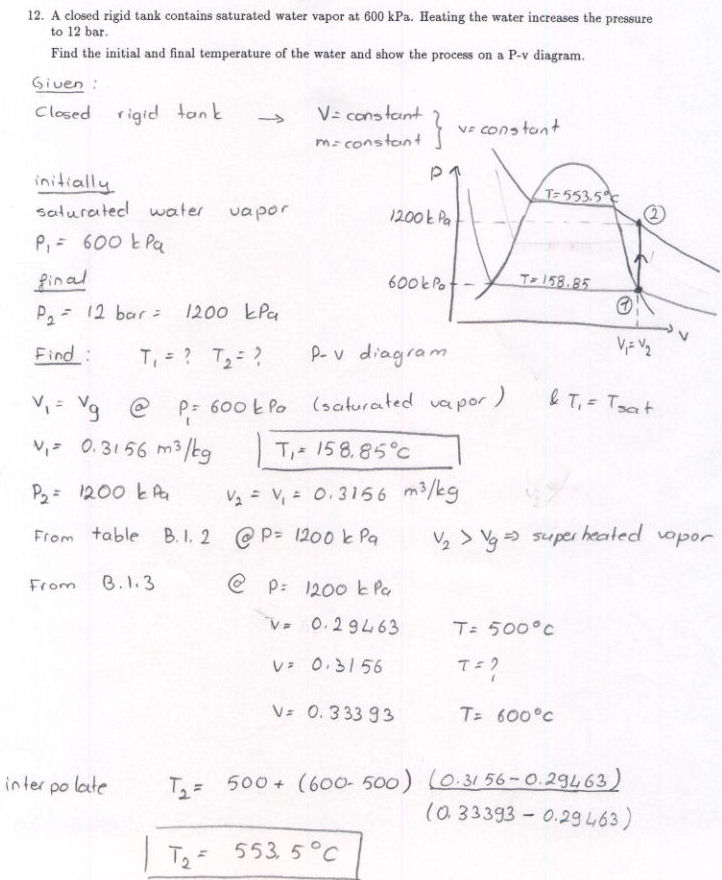 12. A closed rigid tank contains saturated water vapor at 600 kPa. Heating the water increases the pressure
to 12 bar.
Find the initial and final temperature of the water and show the process on a P-v diagram.
Given :
Closed rigid tank → V = constant
m = constant } v = constant
initially
saturated water vapor
P₁ = 600 kPa
final
P₂ = 12 bar = 1200 kPa
P
1200 kPa
600 kPa
T = 553.5°C
T = 158.85
2
1
V₁ = V₂
v
Find : T₁ = ? T₂ = ? P-v diagram
V₁ = Vg @ P₁ = 600 kPa (saturated vapor) & T₁ = Tsat
V₁ = 0.3156 m³/kg T₁ = 158.85°C
P₂ = 1200 kPa V₂ = V₁ = 0.3156 m³/kg
From table B.1.2 @ P = 1200 kPa V₂ > Vg ⇒ superheated vapor
From B.1.3 @ P = 1200 kPa
V = 0.29463 T = 500°C
V = 0.3156 T = ?
V = 0.33393 T = 600°C
interpolate T₂ = 500 + (600 - 500) (0.3156 - 0.29463)
(0.33393 - 0.29463)
T₂ = 553.5°C